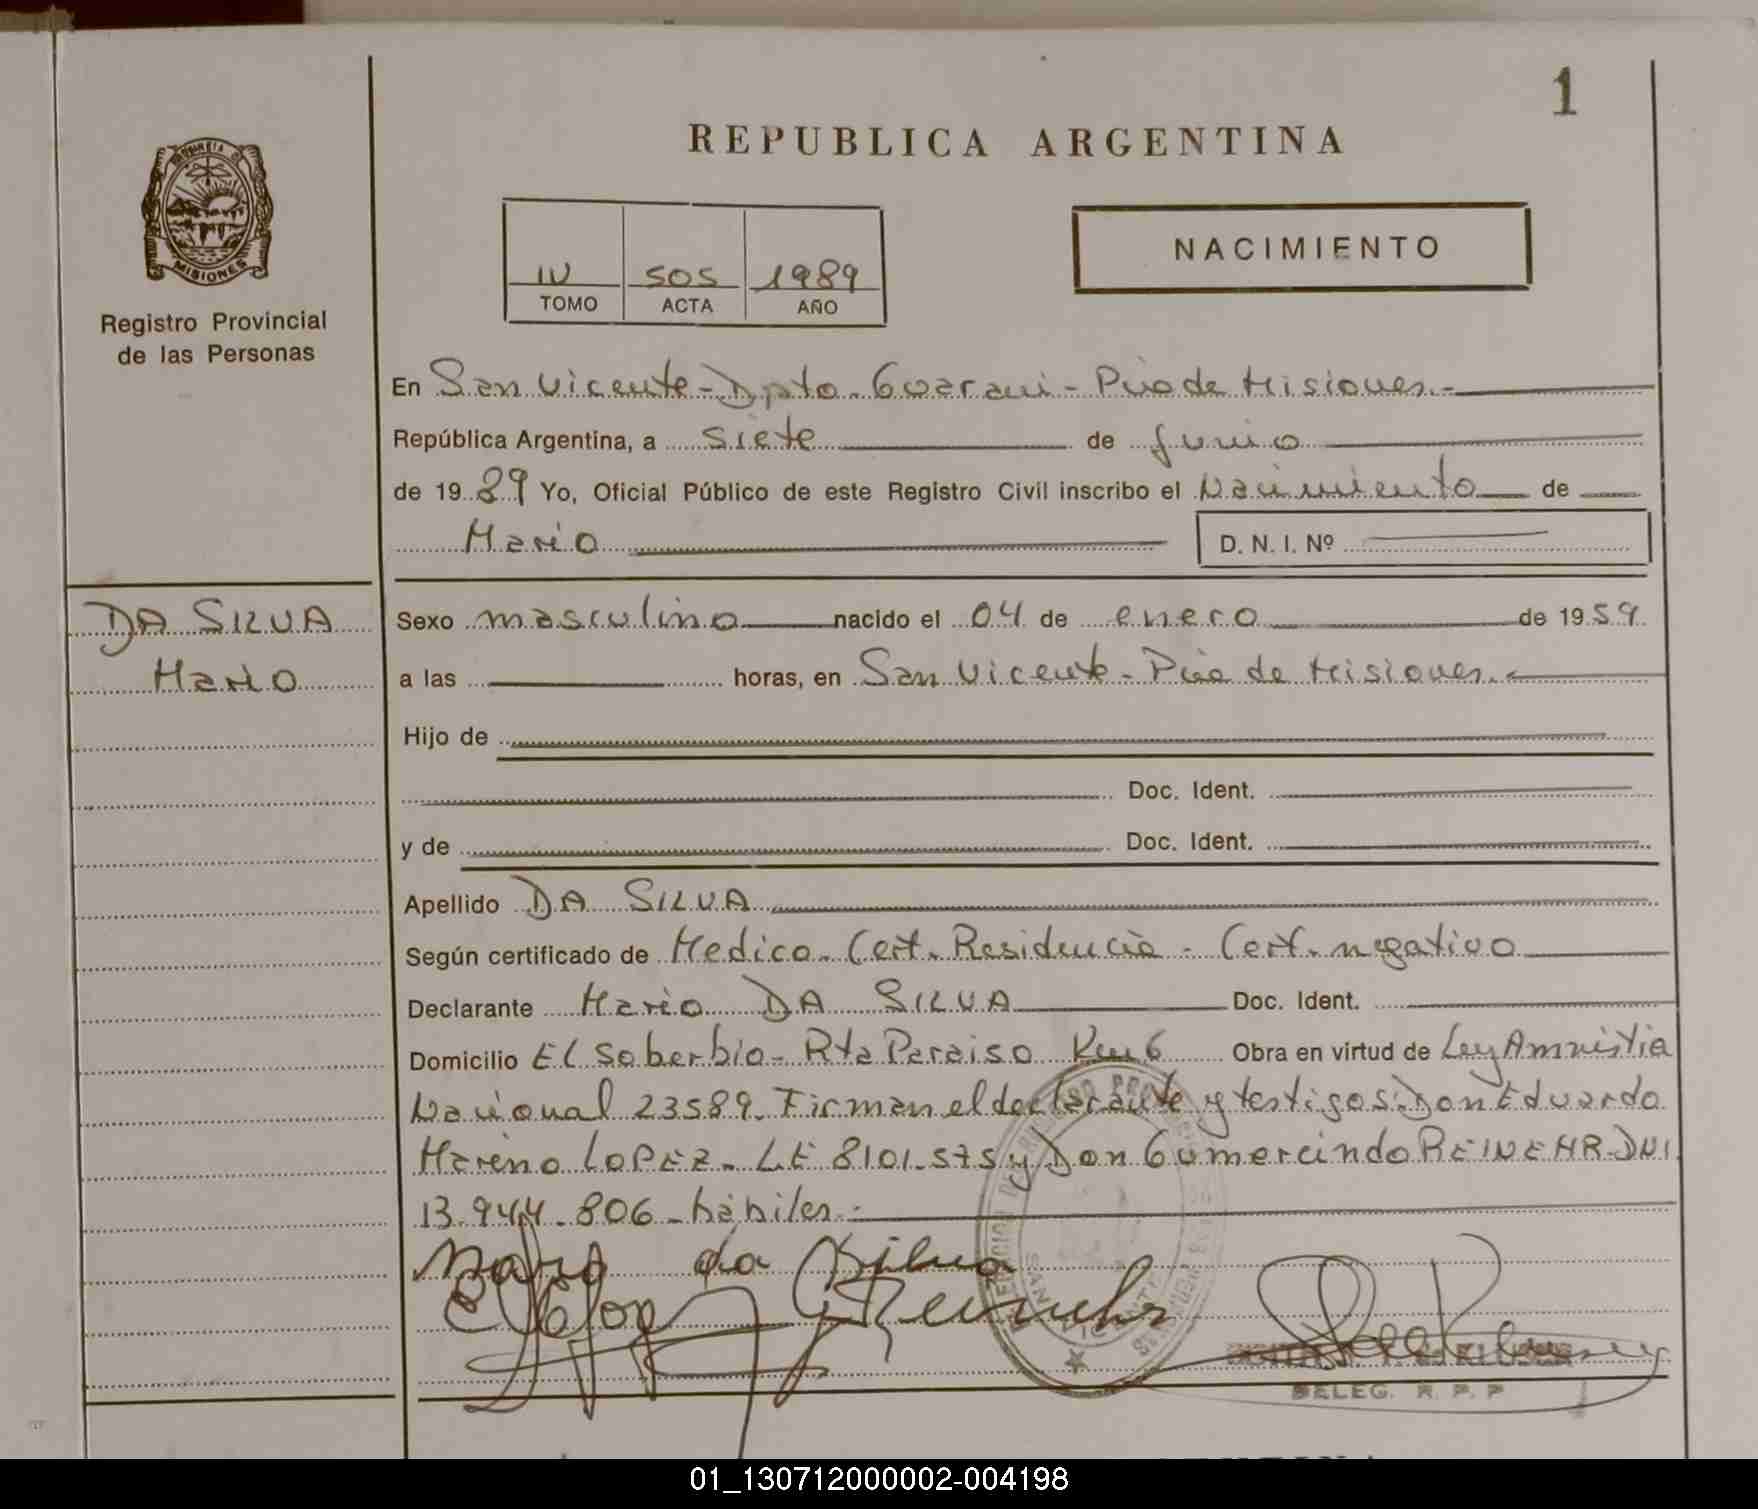 1
REPUBLICA ARGENTINA
PROVINCIA DE
MISIONES
Registro Provincial
de las Personas
IV 505 1989
TOMO ACTA AÑO
NACIMIENTO
En San Vicente - Dpto. Guarani - Pcia de Misiones.-
República Argentina, a siete de Junio
de 1989 Yo, Oficial Público de este Registro Civil inscribo el Nacimiento de
Mario D. N. I. Nº
DA SILVA
Mario
Sexo masculino nacido el 04 de enero de 1959
a las horas, en San Vicente - Pcia de Misiones.-
Hijo de
Doc. Ident.
y de Doc. Ident.
Apellido DA SILVA
Según certificado de Medico. Cert. Residencia - Cert. negativo
Declarante Mario DA SILVA Doc. Ident.
Domicilio EL Soberbio - Rta Paraiso Km 6 Obra en virtud de Ley Amnistia
Nacional 23589. Firman el declarante y testigos: Don Eduardo
Mareno LOPEZ. LE 8101.575 y Don Gumercindo REINEHR - DNI
13.944.806 - hábiles.-
da Silva
SAN VICENTE
DELEG. R. P. P
01_130712000002-004198